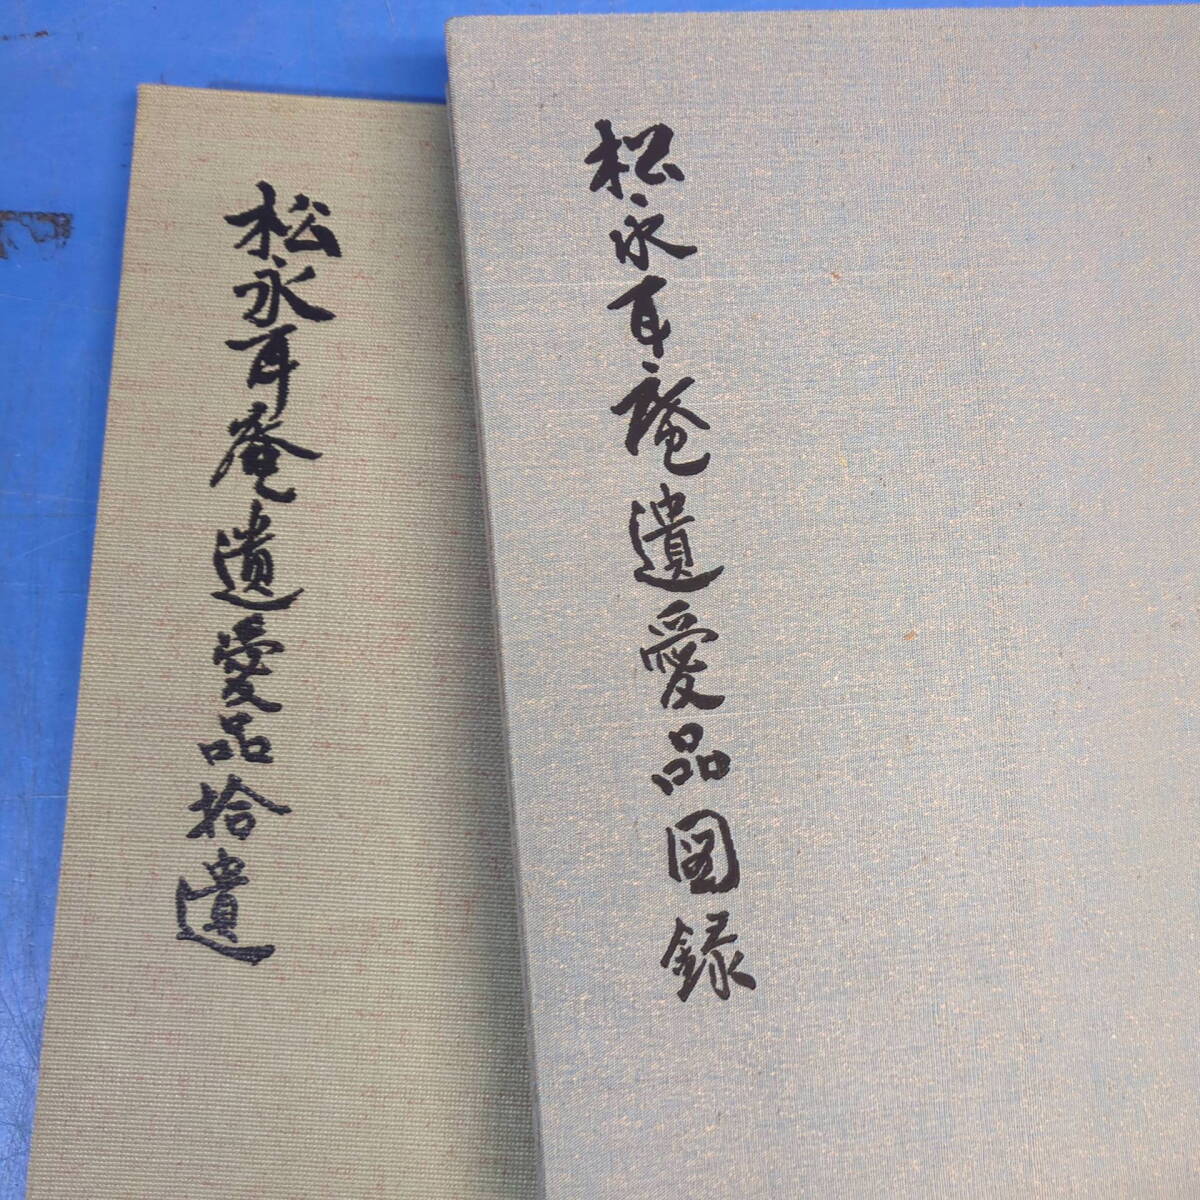 松永耳庵遺愛品図録
松永耳庵遺愛品拾遺